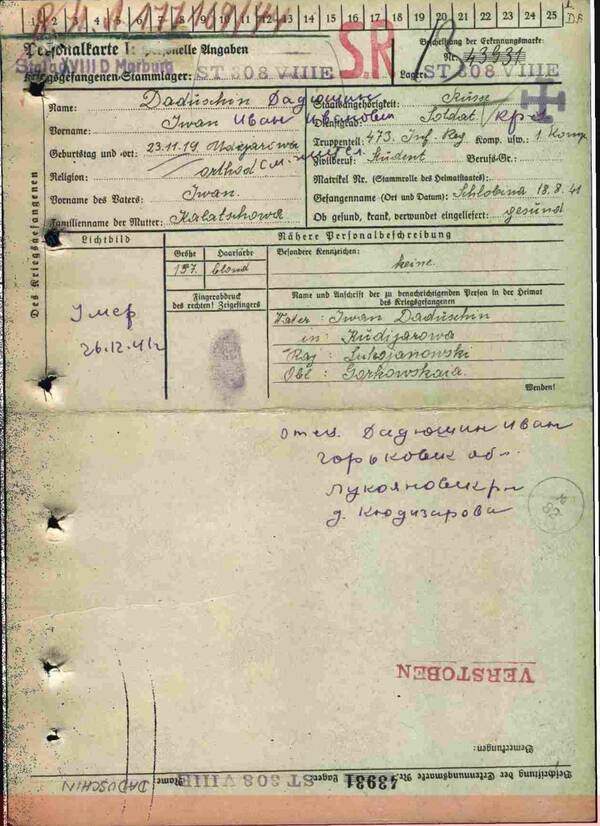 1 2 3 4 5 6 7 8 9 10 11 12 13 14 15 16 17 18 19 20 21 22 23 24 25
Personalkarte I: Personelle Angaben
S.R
Beschriftung der Erkennungsmarke
Nr. 43931
Stalag VIII D
Kriegsgefangenen-Stammlager: ST 308 VIIIE
Lager: ST 308 VIIIE
Des Kriegsgefangenen
Name: Daduschin Дадюшин
Staatsangehörigkeit: Russe
Vorname: Iwan Иван Иванович
Dienstgrad: Soldat кр-ц
Truppenteil: 473. Inf. Reg Komp. usw.: 1. Komp.
Geburtstag und -ort: 23.11.19
Zivilberuf: Student Berufs-Gr.:
Religion: orthod
Matrikel Nr. (Stammrolle des Heimatstaates):
Vorname des Vaters: Iwan
Gefangennahme (Ort und Datum): Schlobina 18.8.41
Familienname der Mutter: Kalatschowa
Ob gesund, krank, verwundet eingeliefert: gesund
Lichtbild
Nähere Personalbeschreibung
Größe Haarfarbe
Besondere Kennzeichen:
157. blond
keine
Fingerabdruck
des rechten! Zeigefingers
Name und Anschrift der zu benachrichtigenden Person in der Heimat
des Kriegsgefangenen
Умер
26.12.41г
Vater: Iwan Daduschin
in: Kudijarowa
Raj: Lukojanowski
Obl: Gorkowskaia.
Wenden!
отец. Дадюшин Иван
Горьковск обл.
Лукояновск р-н
д. Кюдизарова
VERSTOBEN
Bemerkungen:
Beschriftung der Erkennungsmarke Nr. 43931 Lager: ST 308 VIIIE Name: DADUSCHIN